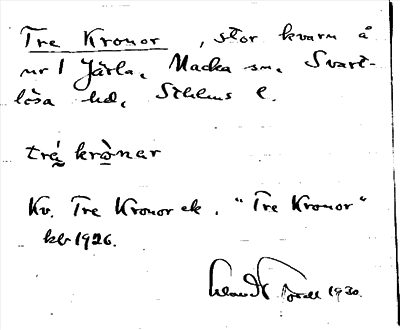 Tre Kronor, stor kvarn å
nr 1 Järla, Nacka sn, Svart-
lösa hd, Sthlms l.
tré̱ krò̱nar
Kv. Tre Kronor ek. "Tre Kronor"
kb 1926.
1930.